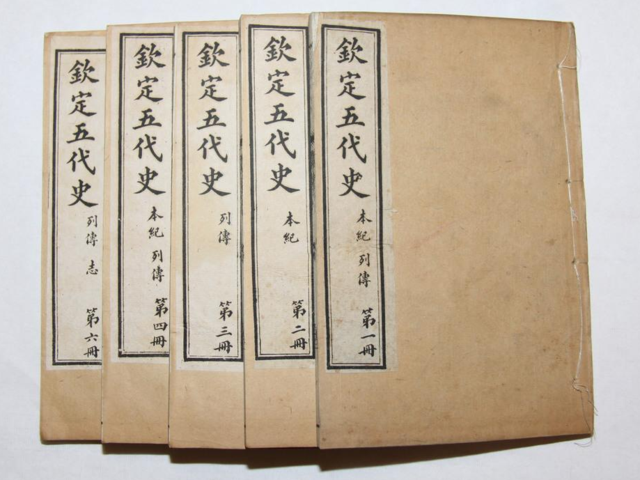 欽定五代史 本紀 列傳 第一冊
欽定五代史 本紀 第二冊
欽定五代史 列傳 第三冊
欽定五代史 本紀 列傳 第四冊
欽定五代史 列傳 志 第六冊